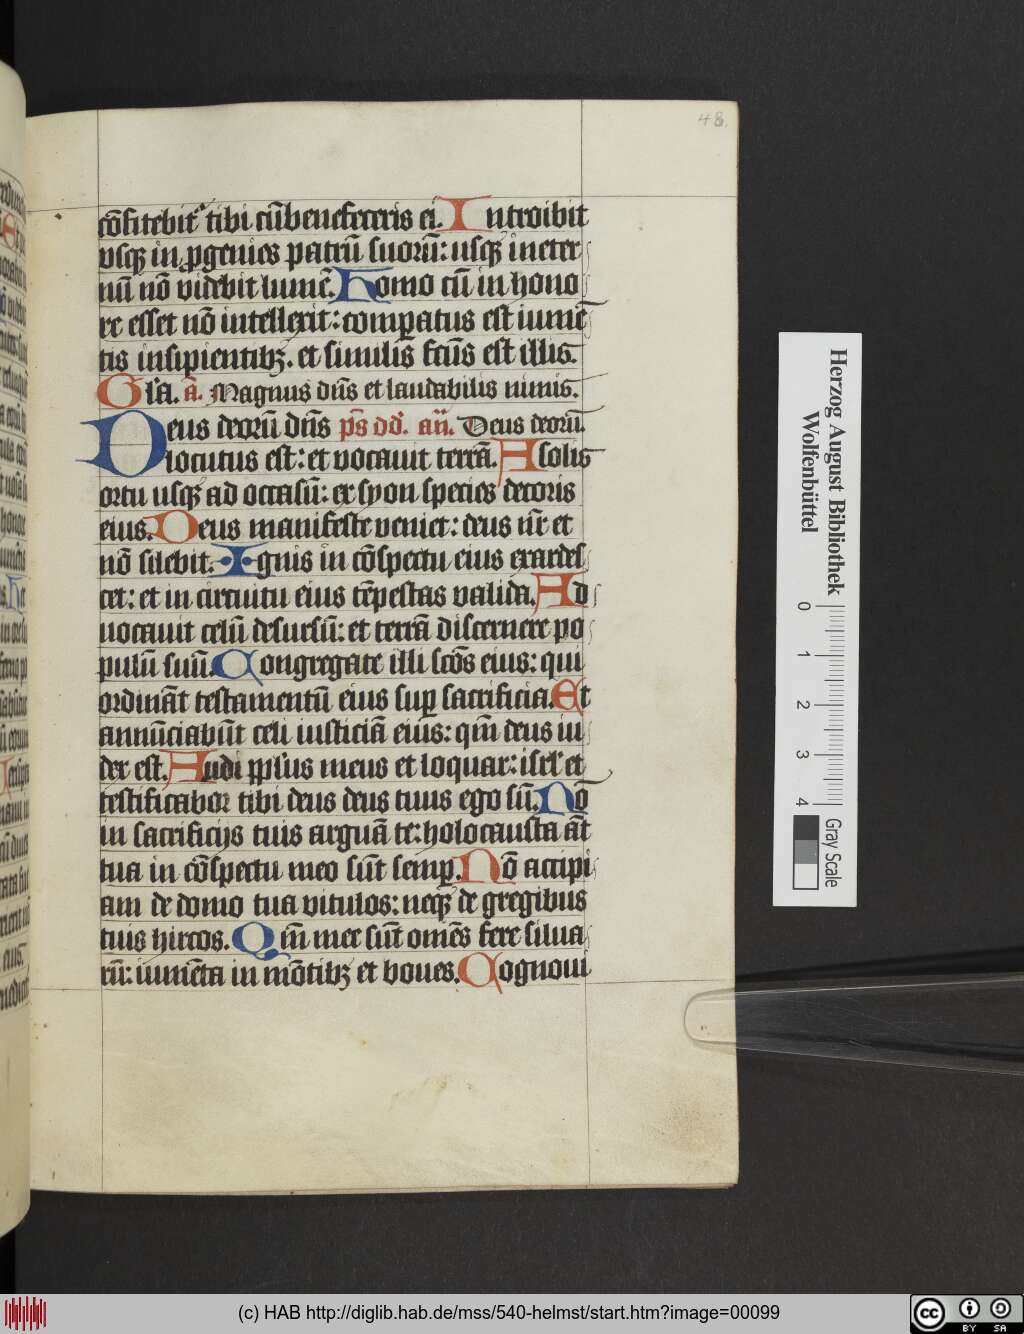 48.
cōfitebit᷑ tibi cū benefeceris ei. Introibit
vsq᷒ in ꝓgenies patrū suoꝝ: usq᷒ in eter
nū nō videbit lumē. Homo cū in hono
re esset nō intellexit: comꝑatus est iumē
tis insipientibꝫ. et similis fcūs est illis.
Gl'a. a. Magnus dn̄s et laudabilis nimis.
Deus deorū dn̄s ps dd. an. Deus deorū.
locutus est: et vocauit terrā. A solis
ortu usq᷒ ad occasū: ex syon species decoris
eius. Deus manifeste veniet: deus nr̄ et
nō silebit. Ignis in cōspectu eius exardes
cet: et in circuitu eius tēpestas valida. Ad
uocauit celū desursū: et terrā discernere po
pulū suū. Congregate illi scōs eius: qui
ordināt testamentū eius suꝑ sacrificia. Et
annūciabūt celi iusticiā eius: qm̄ deus iu
dex est. Audi ppl'us meus et loquar: isrl' et
testificabor tibi deus deus tuus ego sū. Nō
in sacrificijs tuis arguā te: holocausta āt
tua in cōspectu meo sūt semꝑ. Nō accipi
am de domo tua vitulos: neq᷒ de gregibus
tuis hircos. Qm̄ mee sūt omēs fere silua
rū: iumēta in mōtibꝫ et boues. Cognoui
Herzog August Bibliothek
Wolfenbüttel
0 1 2 3 4
Gray Scale
(c) HAB http://diglib.hab.de/mss/540-helmst/start.htm?image=00099
cc BY SA